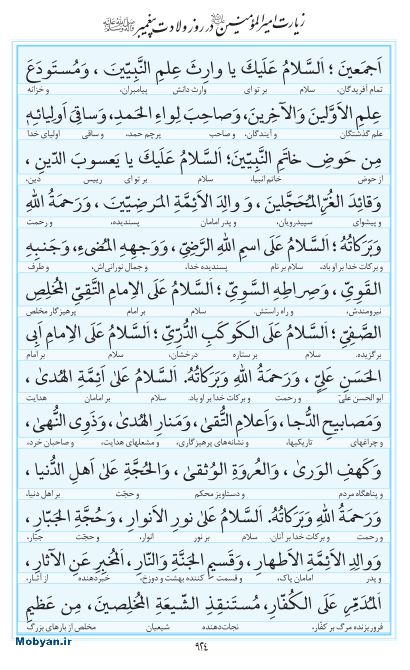 زیارت امیرالمؤمنین در روز ولادت پیغمبر
اَجمَعینَ ؛ اَلسَّلامُ عَلَیکَ یا وارِثَ عِلمِ النَّبِیّینَ ، وَمُستَودَعَ
تمام آفریدگان، سلام بر تو ای وارث دانش پیامبران، و خزانه
عِلمِ الاَوَّلینَ وَالآخِرینَ، وَصاحِبَ لِواءِ الحَمدِ، وَساقِیَ اَولِیائِهٖ
علم گذشتگان و آیندگان، و صاحب پرچم حمد، و ساقی اولیای خدا
مِن حَوضِ خاتَمِ النَّبِیّینَ؛ اَلسَّلامُ عَلَیکَ یا یَعسوبَ الدّینِ ،
از حوض خاتم انبیا، سلام بر تو ای رییس دین،
وَقائِدَ الغُرِّ المُحَجَّلینَ ، وَ والِدَ الاَئِمَّةِ المَرضِیّینَ ، وَرَحمَةُ اللهِ
و پیشوای سپیدرویان، و پدر امامان پسندیده، و رحمت
وَبَرَکاتُهُ ؛ اَلسَّلامُ عَلَی اسمِ اللهِ الرَّضِیِّ ، وَوَجهِهِ المُضیءِ، وَجَنبِهِ
و برکات خدا بر او باد، سلام بر نام پسندیده خدا، و جمال نورانی‌اش، و طرف
القَوِیِّ ، وَصِراطِهِ السَّوِیِّ ؛ اَلسَّلامُ عَلَی الاِمامِ التَّقِیِّ المُخلِصِ
نیرومندش، و راه راستش سلام بر امام پرهیزگار مخلص
الصَّفِیِّ ؛ اَلسَّلامُ عَلَی الکَوکَبِ الدُّرِّیِّ ؛ اَلسَّلامُ عَلَی الاِمامِ اَبِی
برگزیده. سلام بر ستاره درخشان، سلام بر امام
الحَسَنِ عَلِیٍّ ، وَرَحمَةُ اللهِ وَبَرَکاتُهُ. اَلسَّلامُ عَلیٰ اَئِمَّةِ الهُدیٰ ،
ابوالحسن علی و رحمت و برکات خدا بر او باد. سلام بر امامان هدایت
وَمَصابیحِ الدُّجا، وَاَعلامِ التُّقیٰ، وَمَنارِ الهُدیٰ، وَذَوِی النُّهیٰ،
و چراغهای تاریکیها، و نشانه‌های پرهیزگاری، و مشعلهای هدایت، و صاحبان خرد،
وَکَهفِ الوَریٰ، وَالعُروَةِ الوُثقیٰ، وَالحُجَّةِ عَلیٰ اَهلِ الدُّنیا ،
و پناهگاه مردم و دستاویز محکم و حجّت بر اهل دنیا،
وَرَحمَةُ اللهِ وَبَرَکاتُهُ. اَلسَّلامُ عَلیٰ نورِ الاَنوارِ، وَحُجَّةِ الجَبّارِ،
و رحمت و برکات خدا بر آنان. سلام بر نور انوار، و حجّت جبّار،
وَوالِدِ الاَئِمَّةِ الاَطهارِ، وَقَسیمِ الجَنَّةِ وَالنّارِ، المُخبِرِ عَنِ الآثارِ،
و پدر امامان پاک، و قسمت کننده بهشت و دوزخ، خبردهنده از آثار،
اَلمُدَمِّرِ عَلَی الکُفّارِ، مُستَنقِذِ الشّیعَةِ المُخلِصینَ، مِن عَظیمِ
فروریزنده مرگ بر کفّار، نجات‌دهنده شیعیان مخلص از بارهای بزرگ
Mobyan.ir
۹۲۴